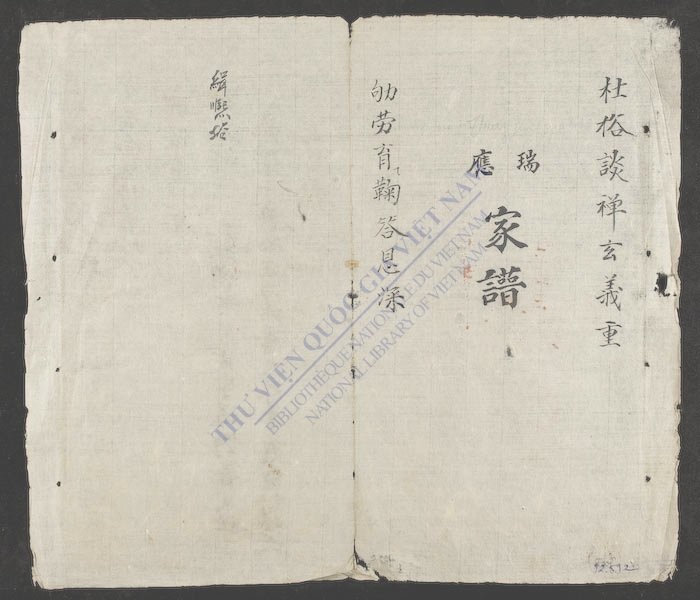 杜俗談禅玄義重
瑞應
家譜
劬劳育鞠答恩深
緝熈
THƯ VIỆN QUỐC GIA VIỆT NAM
BIBLIOTHÈQUE NATIONALE DU VIETNAM
NATIONAL LIBRARY OF VIETNAM